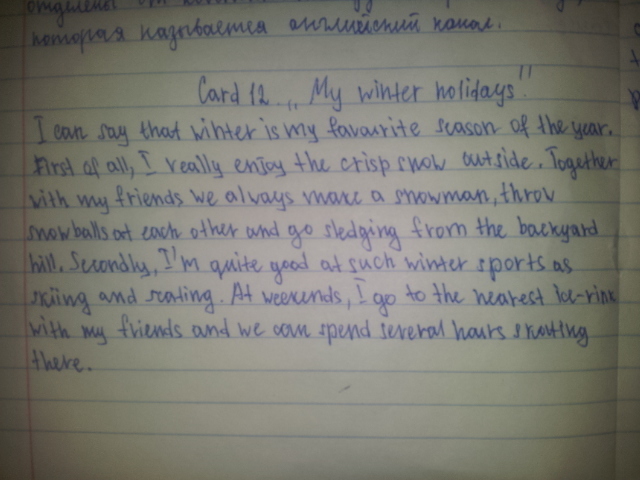 которая называется английский канал.
Card 12. „My winter holidays"
I can say that winter is my favourite season of the year.
First of all, I really enjoy the crisp snow outside. Together
with my friends we always make a snowman, throw
snowballs at each other and go sledging from the backyard
hill. Secondly, I'm quite good at such winter sports as
skiing and scating. At weekends, I go to the nearest ice-rink
with my friends and we can spend several hours skating
there.